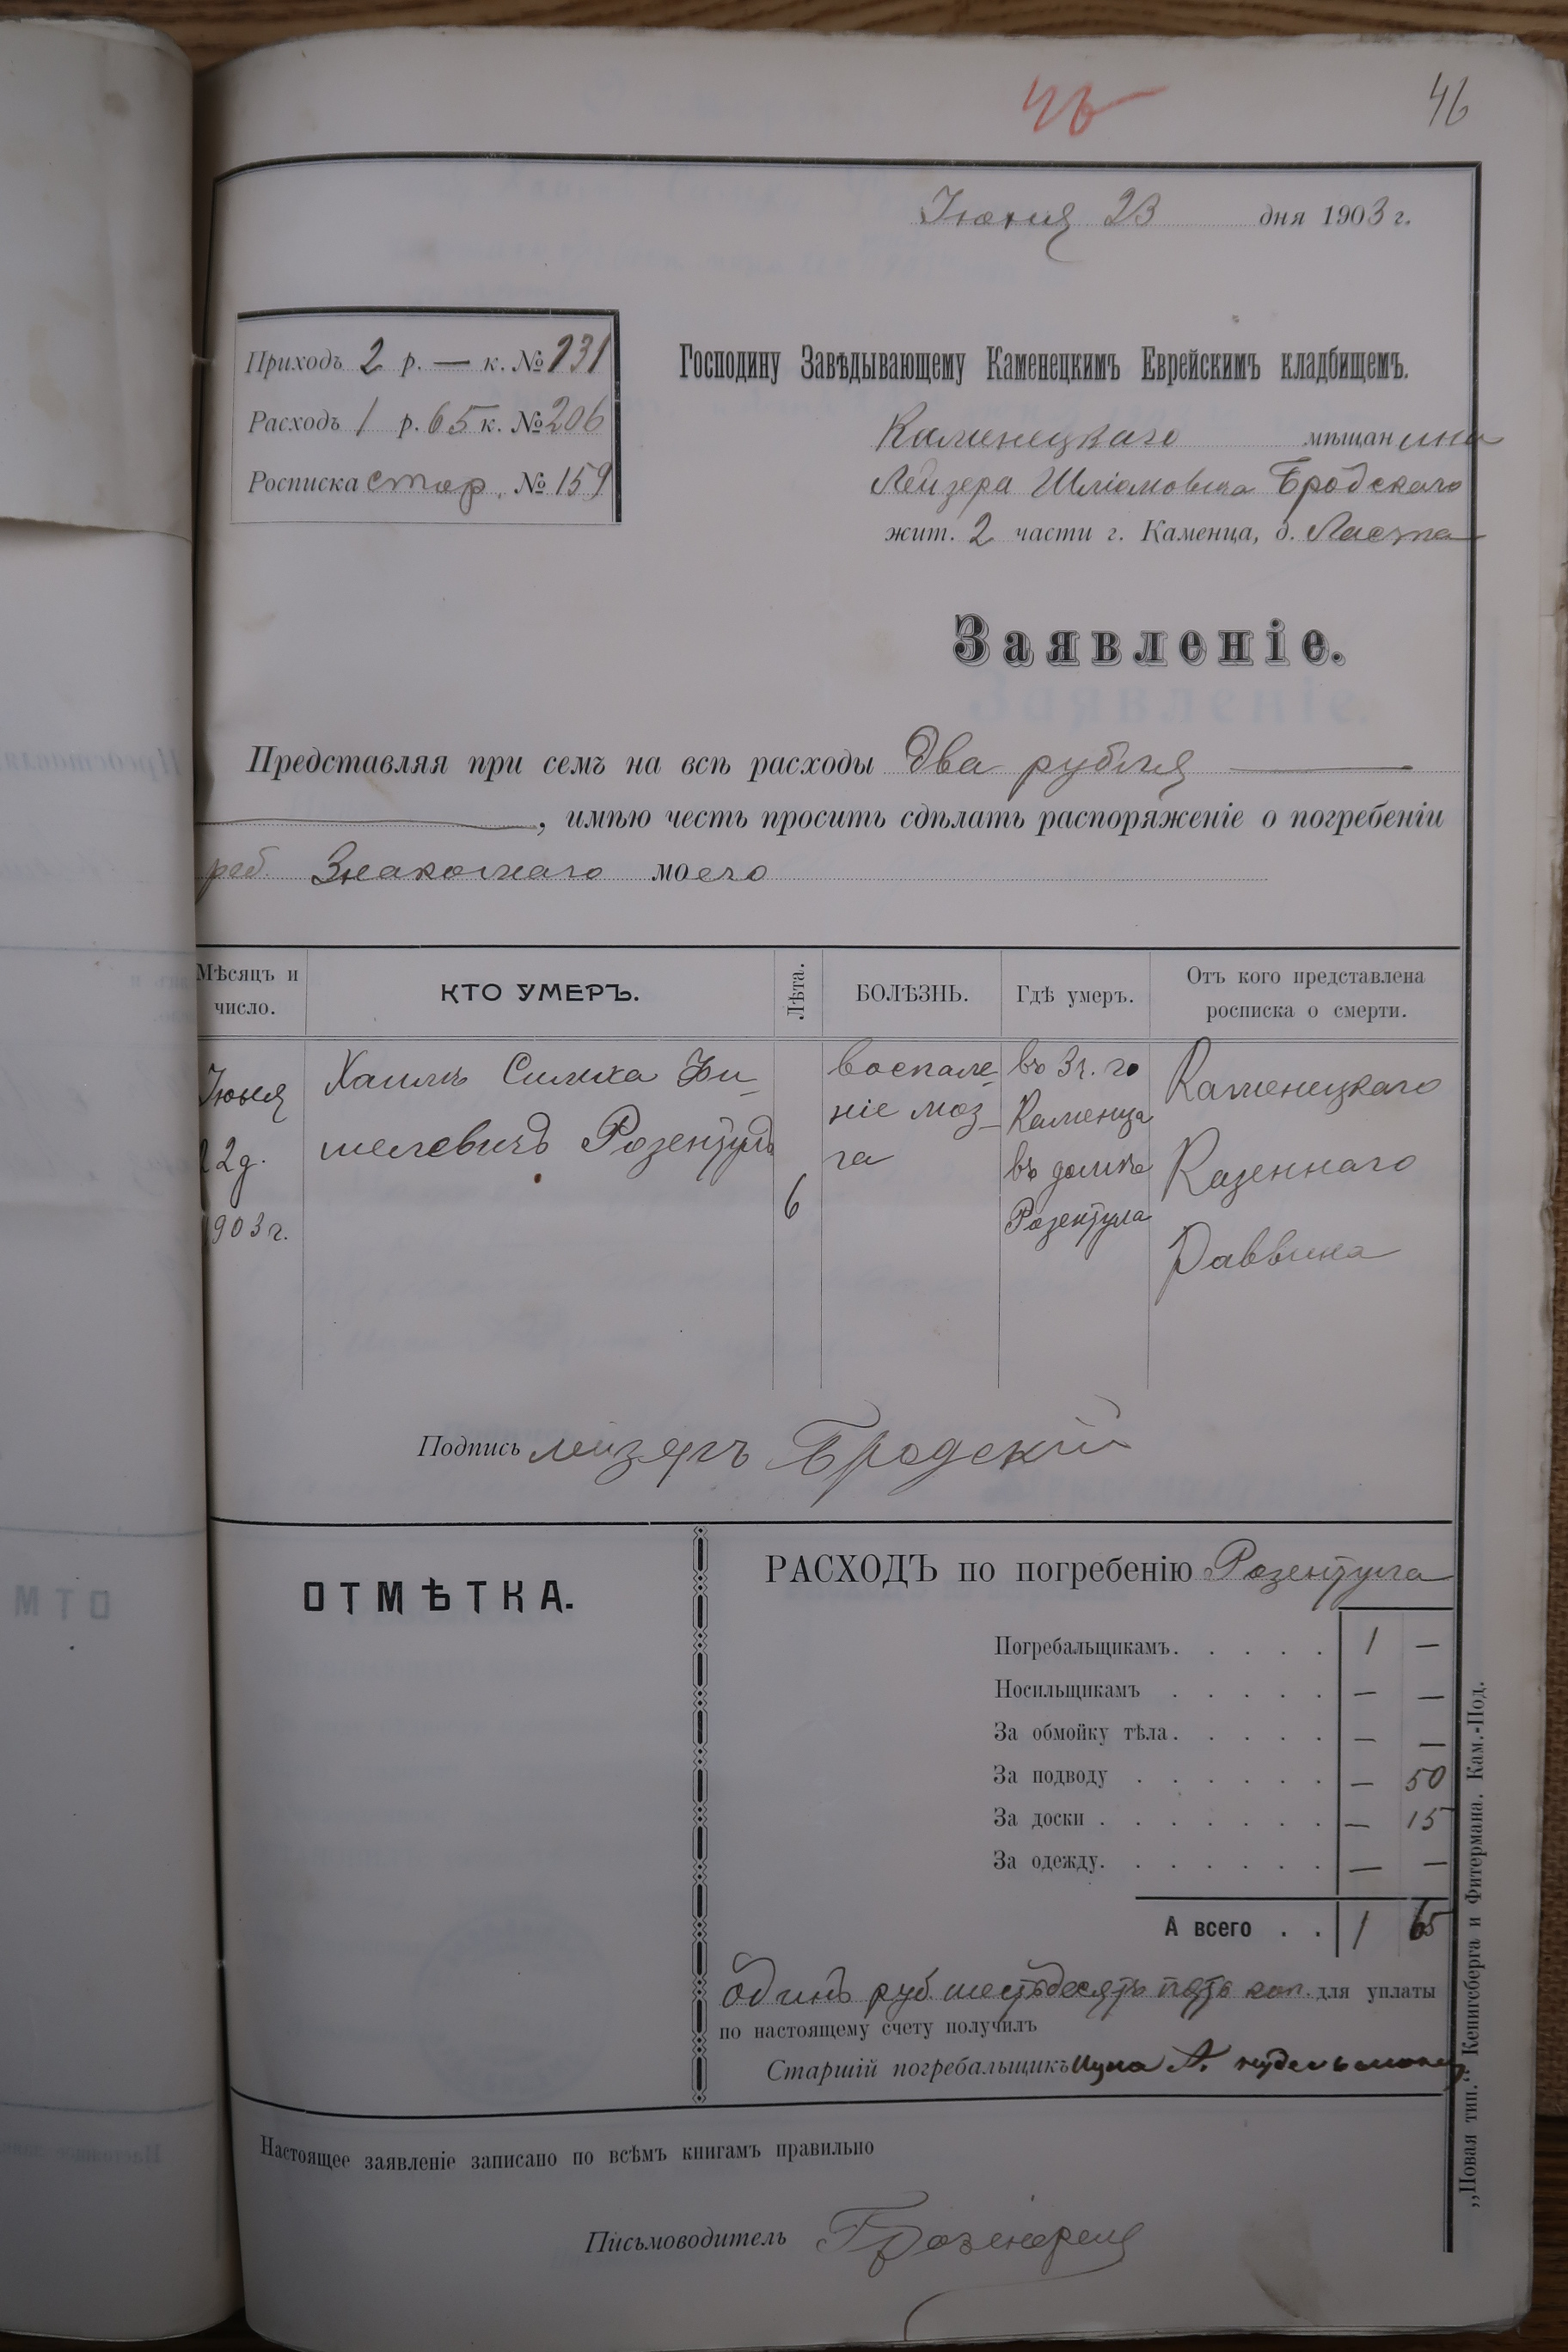 46
46
Іюня 23 дня 1903 г.
Приходъ 2 р. — к. № 231
Расходъ 1 р. 65 к. № 206
Росписка стар. № 159
Господину Завѣдывающему Каменецкимъ Еврейскимъ кладбищемъ.
Каменецкаго мѣщанина
Лейзера Шліомовича Бродскаго
жит. 2 части г. Каменца, д. Ласта
Заявленіе.
Представляя при семъ на всѣ расходы два рубля —
—, имѣю честь просить сдѣлать распоряженіе о погребеніи
реб. Знакомаго моего
Мѣсяцъ и число.
КТО УМЕРЪ.
Лѣта.
БОЛѢЗНЬ.
Гдѣ умеръ.
Отъ кого представлена росписка о смерти.
Іюня
22 д.
1903 г.
Хаимъ Симха Фи-
шелевичъ Розентулъ
6
воспале-
ніе моз-
га
въ 3 ч. го
Каменца
въ домѣ
Розентула
Каменецкаго
Казеннаго
Раввина
Подпись Лейзеръ Бродскій
ОТМѢТКА.
РАСХОДЪ по погребенію Розентула
Погребальщикамъ. . . . . 1 —
Носильщикамъ . . . . . — —
За обмойку тѣла. . . . . — —
За подводу . . . . . . — 50
За доски . . . . . . . — 15
За одежду. . . . . . . — —
А всего . . 1 65
Одинъ руб. шестьдесятъ пять коп. для уплаты
по настоящему счету получилъ
Старшій погребальщикъ
Настоящее заявленіе записано по всѣмъ книгамъ правильно
Письмоводитель
„Новая тип.“ Кенигсберга и Фитермана. Кам.-Под.